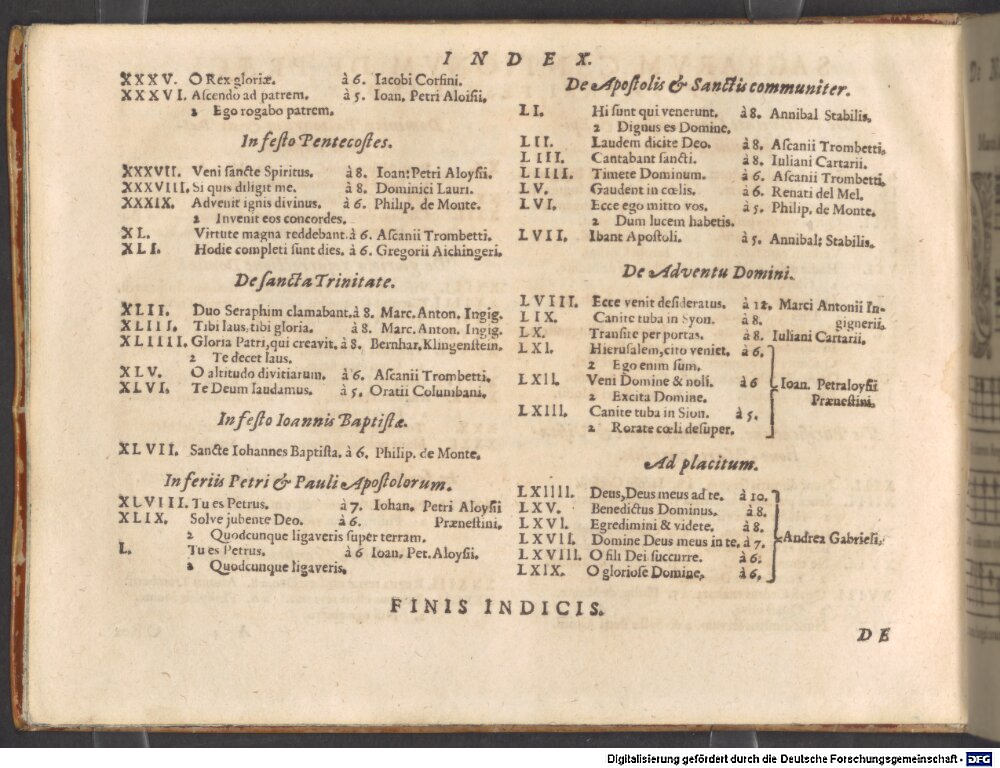 INDEX.
XXXV. O Rex gloriæ. à 6. Iacobi Corfini.
XXXVI. Ascendo ad patrem. à 5. Ioan. Petri Aloisii.
2 Ego rogabo patrem.
In festo Pentecostes.
XXXVII. Veni sancte Spiritus. à 8. Ioan: Petri Aloysii.
XXXVIII. Si quis diligit me. à 8. Dominici Lauri.
XXXIX. Advenit ignis divinus. à 6. Philip. de Monte.
2 Invenit eos concordes.
XL. Virtute magna reddebant. à 6. Ascanii Trombetti.
XLI. Hodie completi sunt dies. à 6. Gregorii Aichingeri.
De sancta Trinitate.
XLII. Duo Seraphim clamabant. à 8. Marc. Anton. Ingig.
XLIII. Tibi laus, tibi gloria. à 8. Marc. Anton. Ingig.
XLIIII. Gloria Patri, qui creavit. à 8. Bernhar. Klingenstein.
2 Te decet laus.
XLV. O altitudo divitiarum. à 6. Ascanii Trombetti.
XLVI. Te Deum laudamus. à 5. Oratii Columbani.
In festo Ioannis Baptistæ.
XLVII. Sancte Iohannes Baptista. à 6. Philip. de Monte.
In feriis Petri & Pauli Apostolorum.
XLVIII. Tu es Petrus. à 7. Iohan. Petri Aloysii
XLIX. Solve jubente Deo. à 6. Prænestini.
2 Quodcunque ligaveris super terram.
L. Tu es Petrus. à 6 Ioan. Pet. Aloysii.
2 Quodcunque ligaveris.
De Apostolis & Sanctis communiter.
LI. Hi sunt qui venerunt. à 8. Annibal Stabilis.
2 Dignus es Domine.
LII. Laudem dicite Deo. à 8. Ascanii Trombetti.
LIII. Cantabant sancti. à 8. Iuliani Cartarii.
LIIII. Timete Dominum. à 6. Ascanii Trombetti.
LV. Gaudent in cœlis. à 6. Renati del Mel.
LVI. Ecce ego mitto vos. à 5. Philip. de Monte.
2 Dum lucem habetis.
LVII. Ibant Apostoli. à 5. Annibal: Stabilis.
De Adventu Domini.
LVIII. Ecce venit desideratus. à 12. Marci Antonii In-
LIX. Canite tuba in Syon. à 8. gignerii.
LX. Transite per portas. à 8. Iuliani Cartarii.
LXI. Hierusalem, cito veniet. à 6.
2 Ego enim sum.
LXII. Veni Domine & noli. à 6 Ioan. Petraloysii
2 Excita Domine. Prænestini.
LXIII. Canite tuba in Sion. à 5.
2 Rorate cœli desuper.
Ad placitum.
LXIIII. Deus, Deus meus ad te. à 10.
LXV. Benedictus Dominus. à 8.
LXVI. Egredimini & videte. à 8.
LXVII. Domine Deus meus in te. à 7. Andreæ Gabrieli.
LXVIII. O fili Dei succurre. à 6.
LXIX. O gloriose Domine. à 6.
FINIS INDICIS.
DE
Digitalisierung gefördert durch die Deutsche Forschungsgemeinschaft - DFG